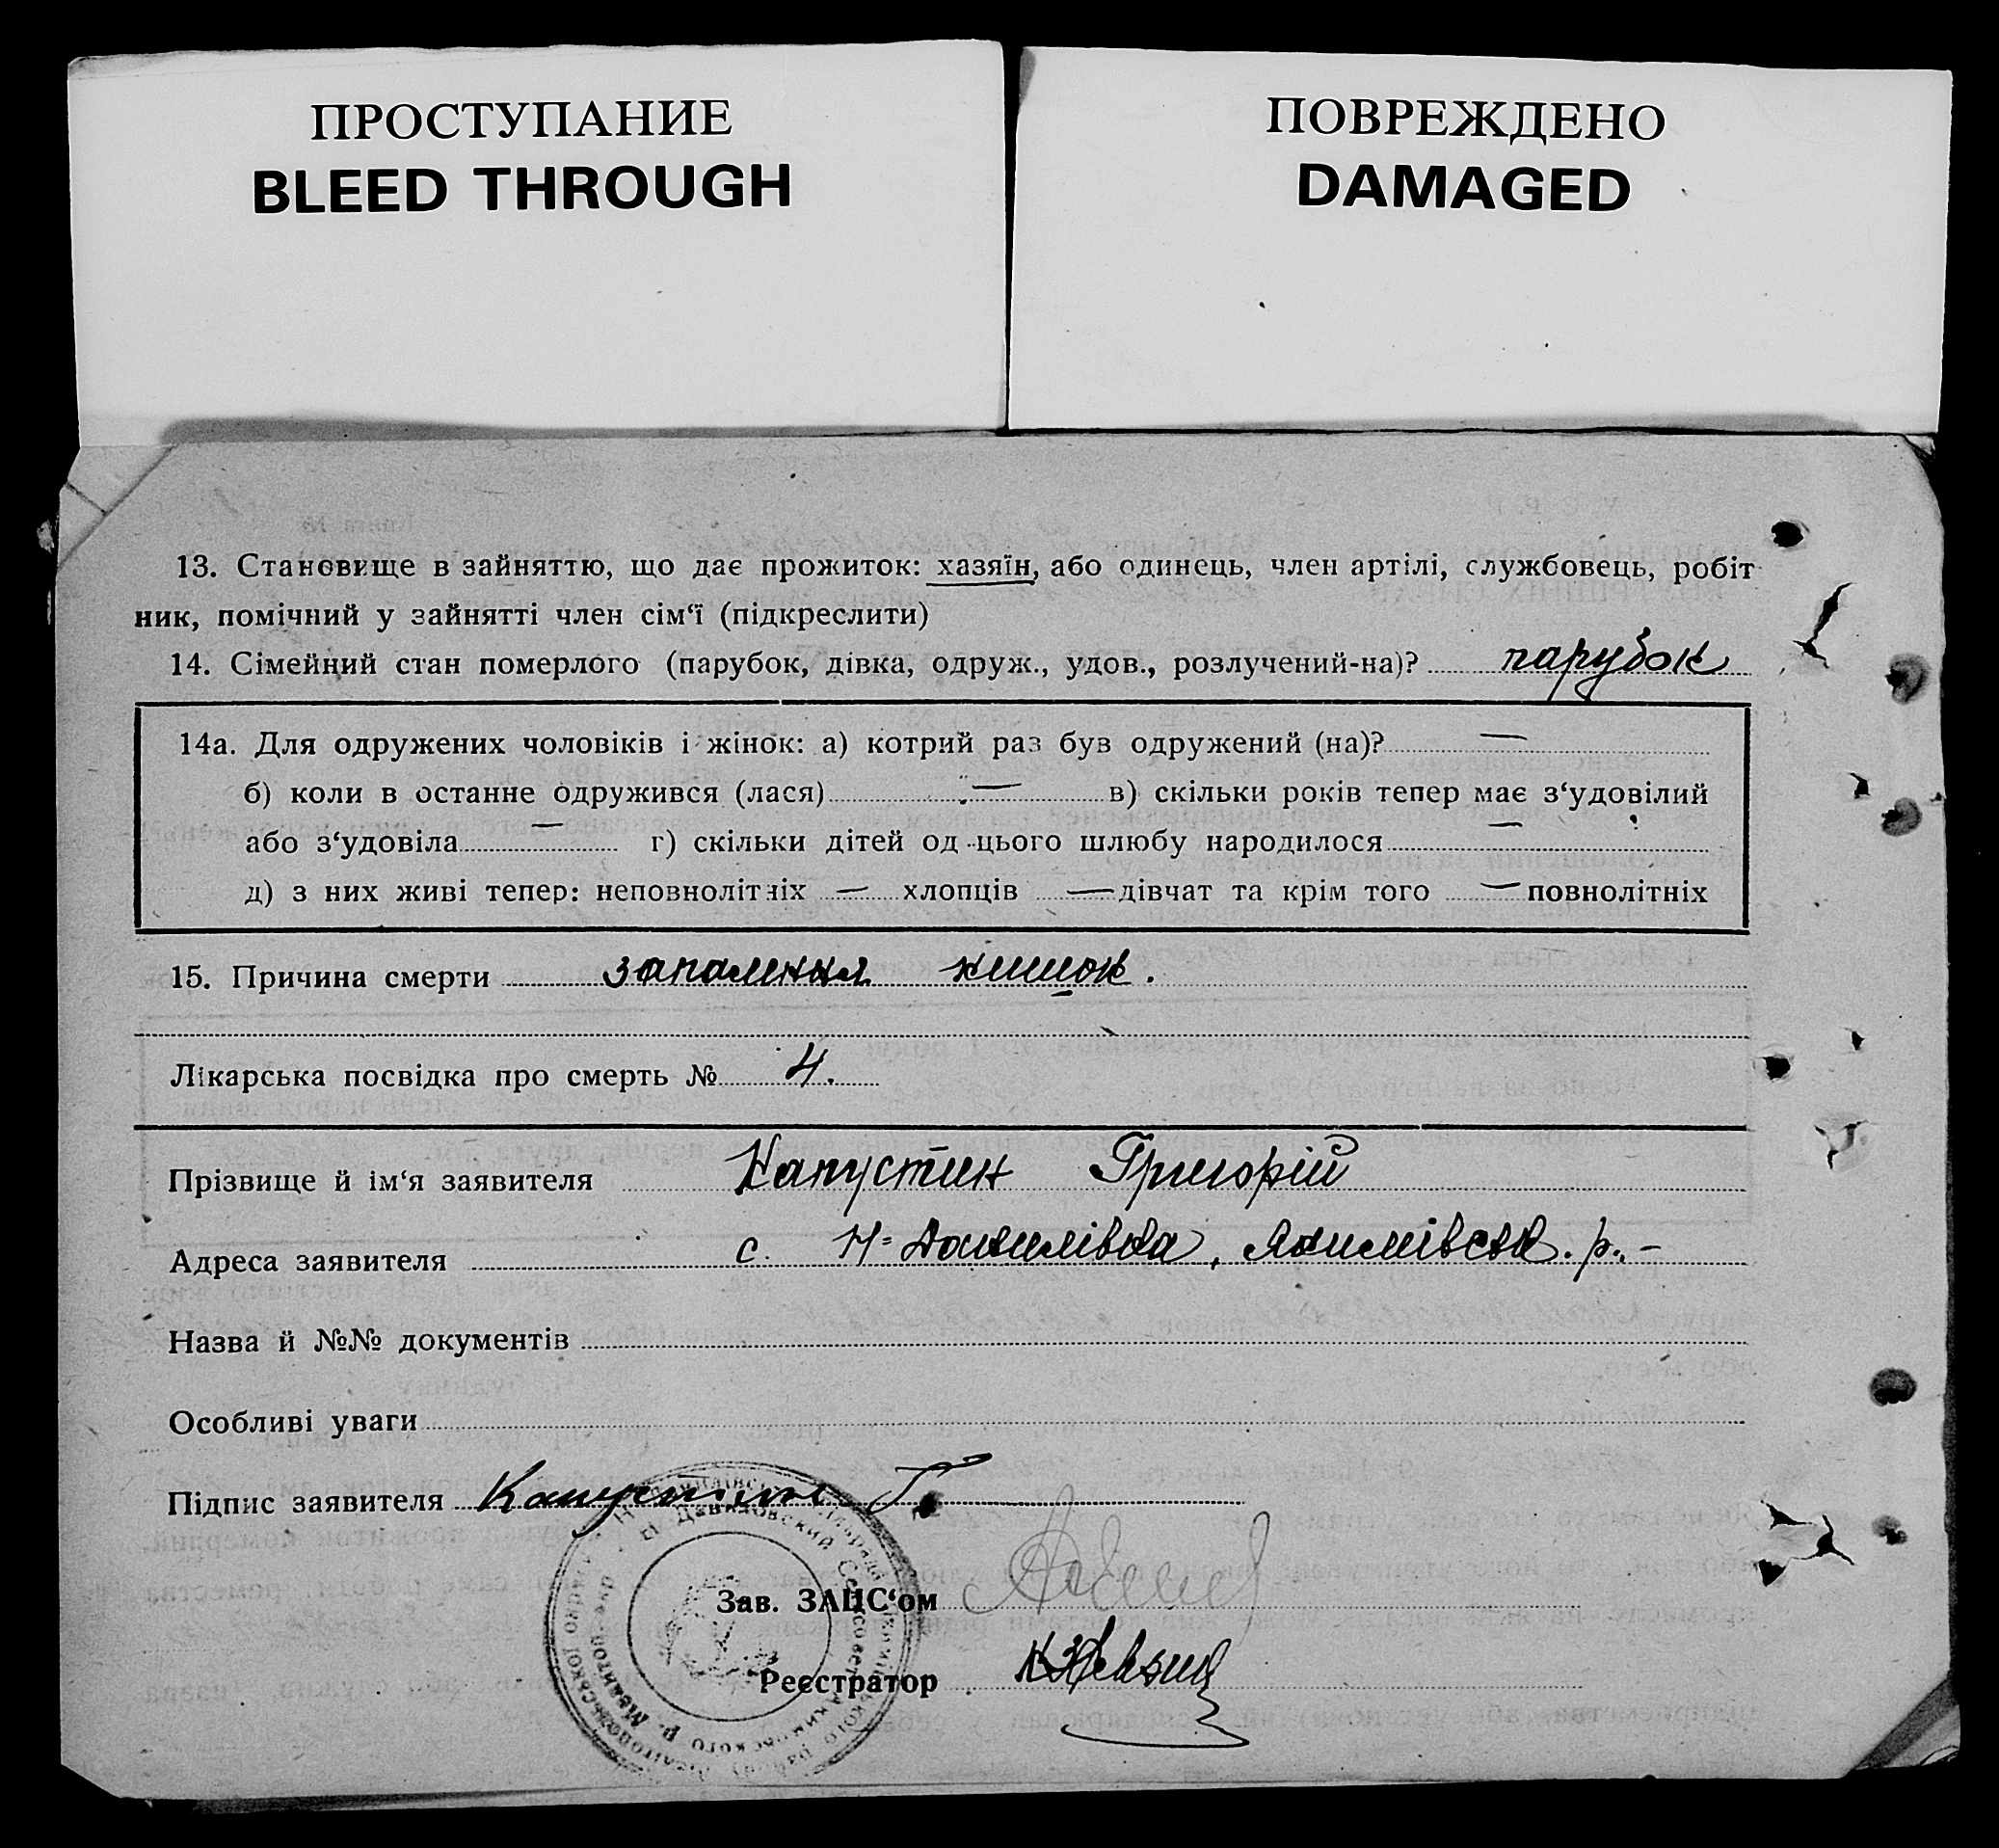 ПРОСТУПАНИЕ
BLEED THROUGH
ПОВРЕЖДЕНО
DAMAGED
13. Становище в зайняттю, що дає прожиток: хазяїн, або одинець, член артілі, службовець, робіт
ник, помічний у зайнятті член сім‘ї (підкреслити)
14. Сімейний стан померлого (парубок, дівка, одруж., удов., розлучений-на)? парубок
14а. Для одружених чоловіків і жінок: а) котрий раз був одружений (на)? —
б) коли в останне одружився (лася) — в) скільки років тепер має з‘удовілий
або з‘удовіла — г) скільки дітей од цього шлюбу народилося —
д) з них живі тепер: неповнолітніх — хлопців — дівчат та крім того — повнолітніх
15. Причина смерти запалення кишок.
Лікарська посвідка про смерть № 4.
Прізвище й ім‘я заявителя Капустин Григорій
Адреса заявителя с. Н=Данилівка, Якимівськ. р., –
Назва й №№ документів
Особливі уваги
Підпис заявителя Капустин Г.
Зав. ЗАЦС‘ом
Реєстратор